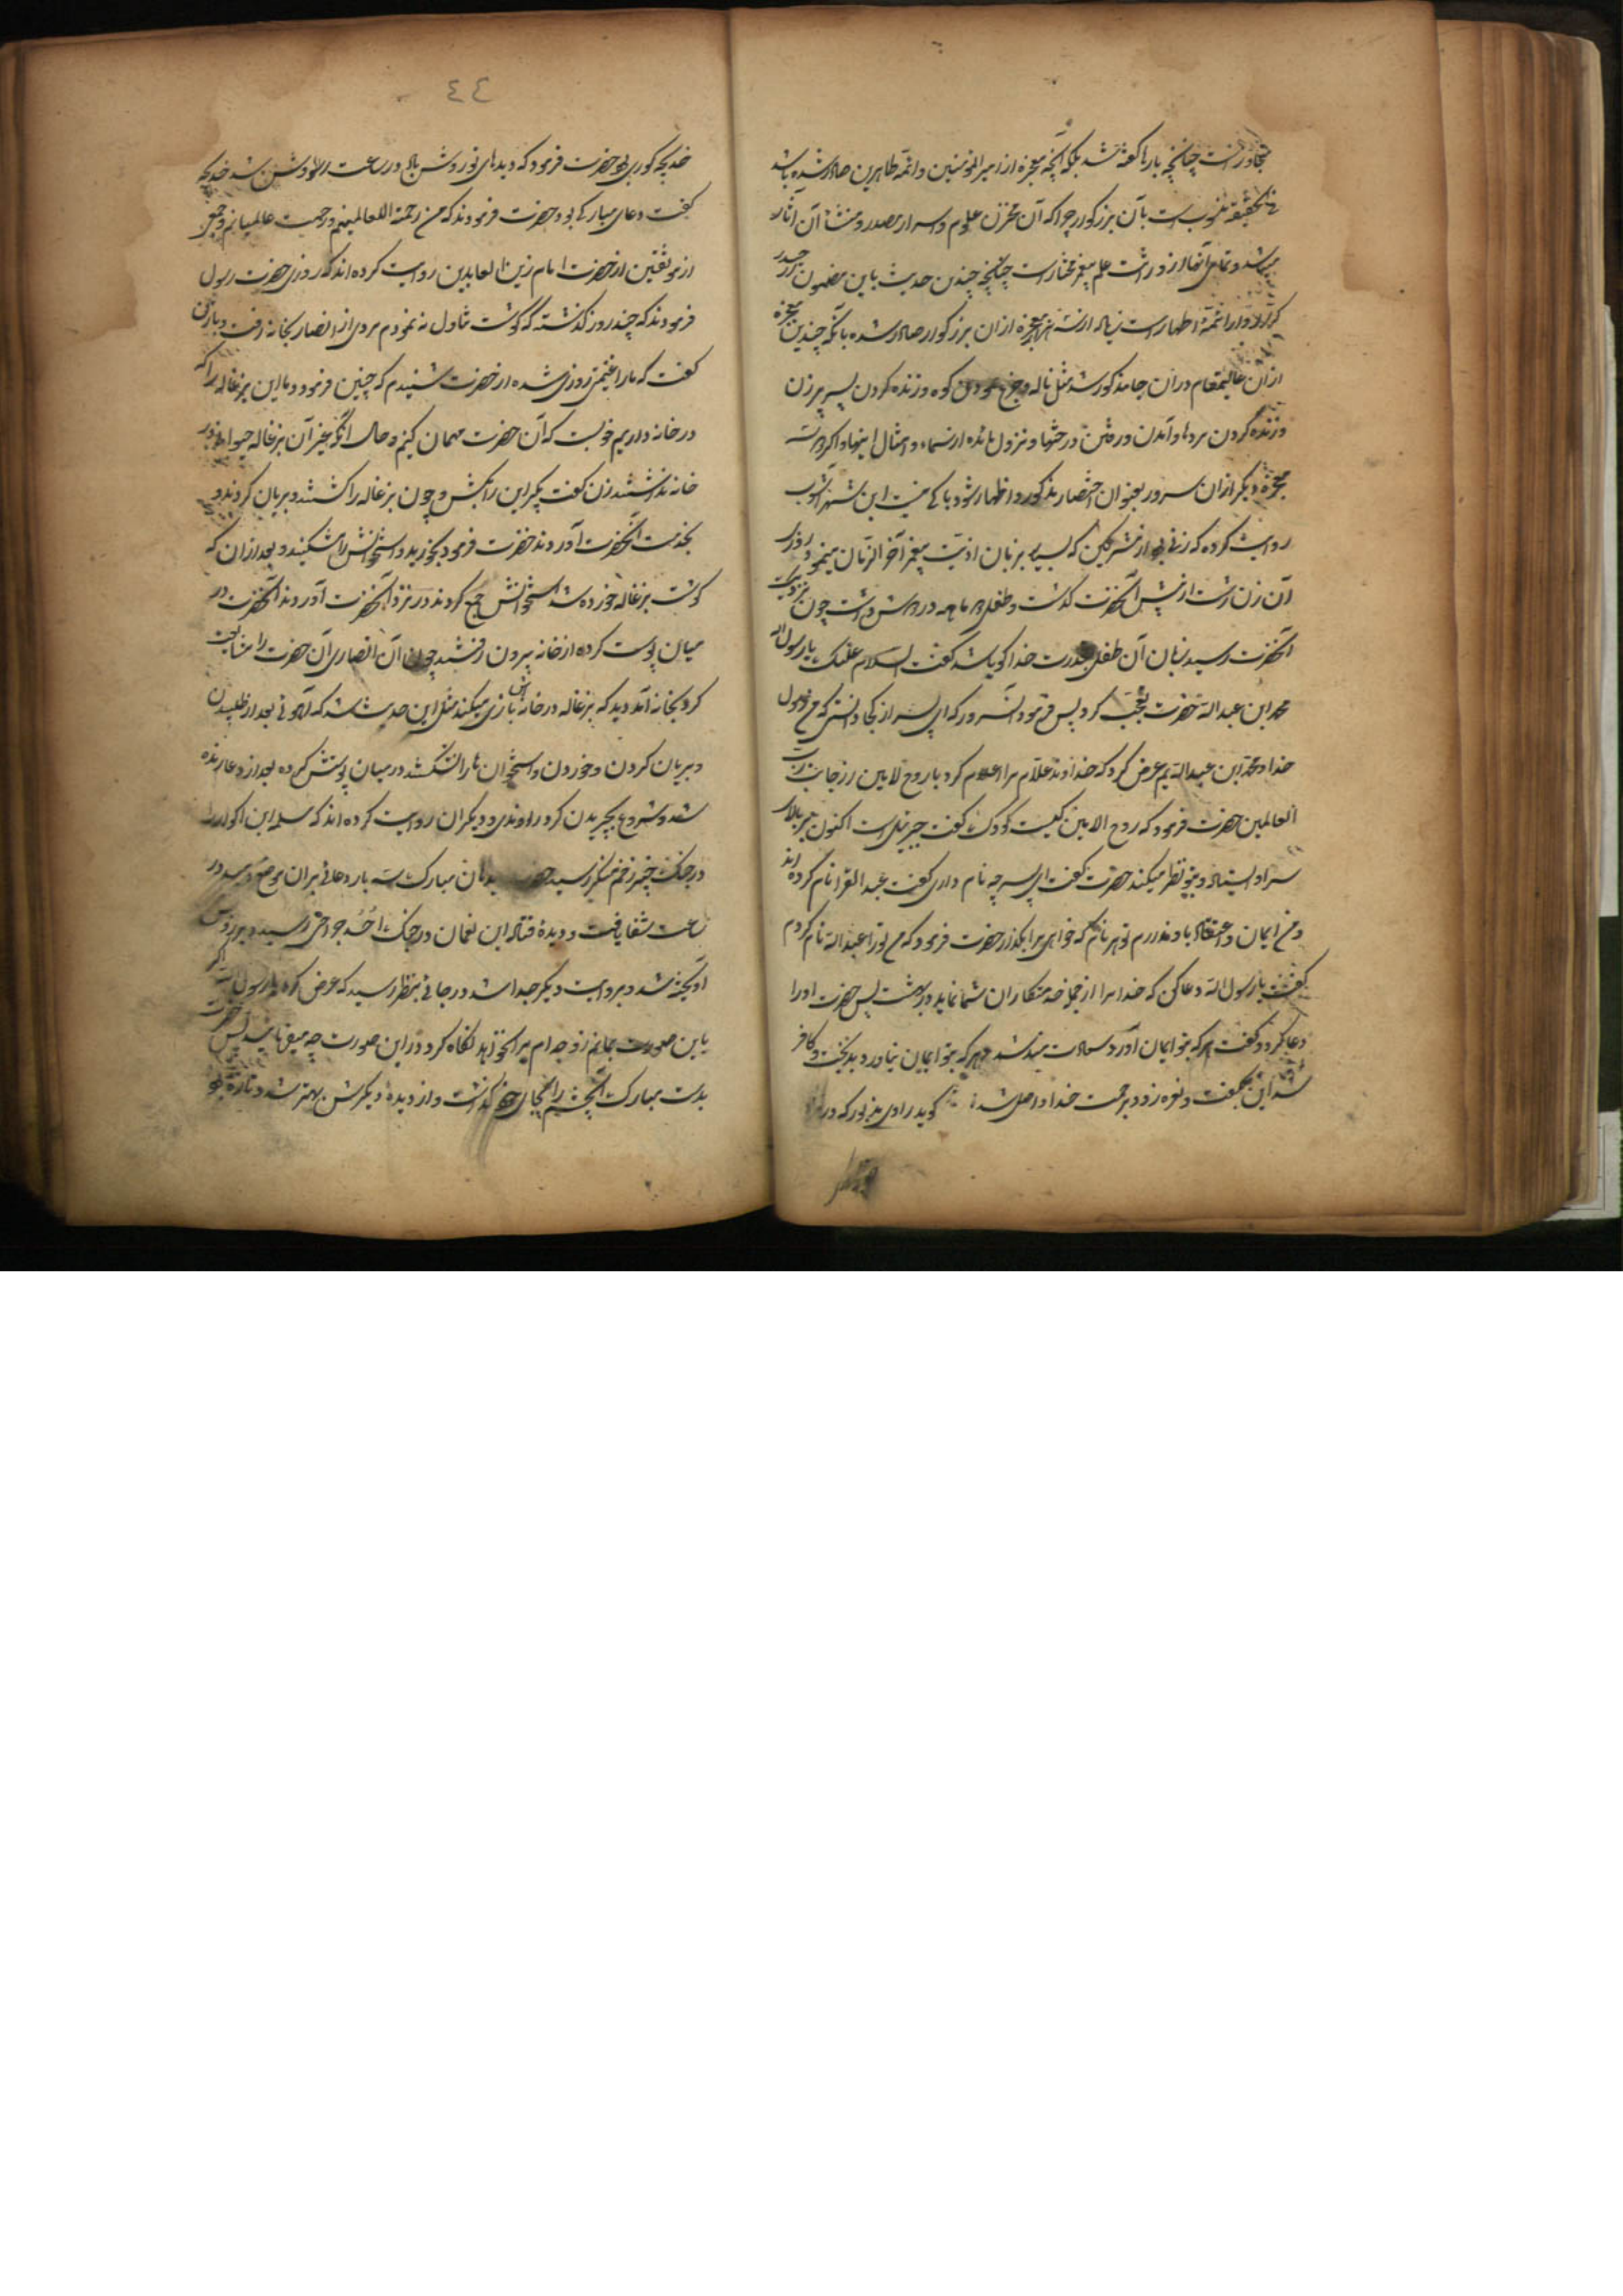 متجاوز است چنانچه بارها گفته شد بلکه آنچه معجزه از امیرالمؤمنین و ائمه طاهرین صادر شده باشد
فی الحقیقه منسوبست بآن بزرگوار چرا که آن مخزن علوم و اسرار مصدر و منشأ آن آثار
میباشد و تمامی آنها از وراثت علم پیغمبر مختار است چنانچه چندین حدیث باین مضمون
ائمه اطهار است زیاده از معجزه از ان بزرگوار صادر شده بآنکه چندین معجزه
از ان عالیمقام در ان جا مذکور شد مثل ناله کوه و زنده کردن پسر پیرزن
و زنده کردن مردها و آمدن و رفتن درختها و نزول مائده از سماء و امثال اینها و اگر
معجزه دیگر از ان سرور بعنوان اختصار مذکور و اظهار شود باکی نیست ابن شهر آشوب
روایت کرده که زنی بود از مشرکین که بسیار بزبان اذیت پیغمبر آخر الزمان مینمود روزی
آن زن از پیش آنحضرت گذشت و طفل ماهه در داشت چون بنزدیک
آنحضرت رسید زبان آن طفل بقدرت خدا گویا شد گفت السلام علیک یا رسول الله
محمد ابن عبدالله حضرت تعجب کرد پس فرمود آنسرور که ای پسر از کجا دانستی که من رسول
خدا و محمد ابن عبدالله یم عرض کرد که خداوند علام مرا اعلام کرد با روح الامین از جانب رب
العالمین حضرت فرمود که روح الامین کیست کودک گفت جبرئیل است اکنون بر بالای
سر ایستاده و بتو نظر میکند حضرت گفت ای پسر چه نام داری گفت عبد العزا نام کرده اند
و من ایمان و اعتقاد باو ندارم تو هر نام که خواهی مرا بگذار حضرت فرمود که من تو را عبدالله نام کردم
گفت یا رسول الله دعا کن که خدا مرا از جمله خدمتکاران شما نماید در بهشت پس حضرت او را
دعا کرد و گفت هر که بتو ایمان آورد سعادتمند شد و هر که بتو ایمان نیاورد بدبخت و کافر
شد این بگفت و نعره زد و برحمت خدا واصل شد گوید راوی مزبور که در
٤٤
خدیجه کوری بود حضرت فرمود که دیدهای تو روشن باد در ساعت روشن شد خدیجه
گفت دعای مبارکی بود حضرت فرمودند که من رحمة اللعالمینم و رحمت عالمیانم و جمعی
از موثقین از حضرت امام زین العابدین روایت کرده اند که روزی حضرت رسول
فرمودند که چند روز گذشته که گوشت تناول نه نمودم مردی از انصار بخانه رفت و بازن
گفت که ما را غنیمتی روزی شده از حضرت شنیدم که چنین فرمود و ما این بزغاله را که
در خانه داریم خوبست که آن حضرت مهمان کنیم و حال آنکه غیر آن بزغاله حیوانی در
خانه نداشتند زن گفت بگیر این را بکش و چون بزغاله را کشتند و بریان کردند و
بخدمت آنحضرت آوردند حضرت فرمود بخورید و استخوانش را مشکنید و بعد از ان که
گوشت بزغاله خورده شد استخوانش جمع کردند و در نزد آنحضرت آوردند آنحضرت در
میان پوست کرده از خانه بیرون رفتند چون آن انصاری آن حضرت را مشایعت
کرد بخانه آمد دید که بزغاله در خانه بازی میکند مثل این حدیث شد که آهوئی بعد از طلبیدن
و بریان کردن و خوردن و استخوان ها را نشکستند در میان پوستش کرده بعد از دعا زنده
شد و شروع بچریدن کرد راوندی و دیگران روایت کرده اند که سلمه ابن اکوع را
در جنگ خیبر زخم منکر رسید حضرت بدهان مبارک سه بار دعائی بران موضع دمید در
ساعت شفا یافت و دیدهٔ قتاده ابن نعمان در جنک احد جراحتی رسید و بر رویش
آویخته شد و بروایت دیگر جدا شد در جائی بنظر رسید که عرض کرد یا رسول الله اگر
باین صورت بمانم زوجه ام مرا نخواهد نگاه کرد در این صورت چه میفرمائید پس حضرت
بدست مبارک آنچشم را بجای خود گذاشت و از دیدهٔ دیگرش بهتر شد و تازه بود